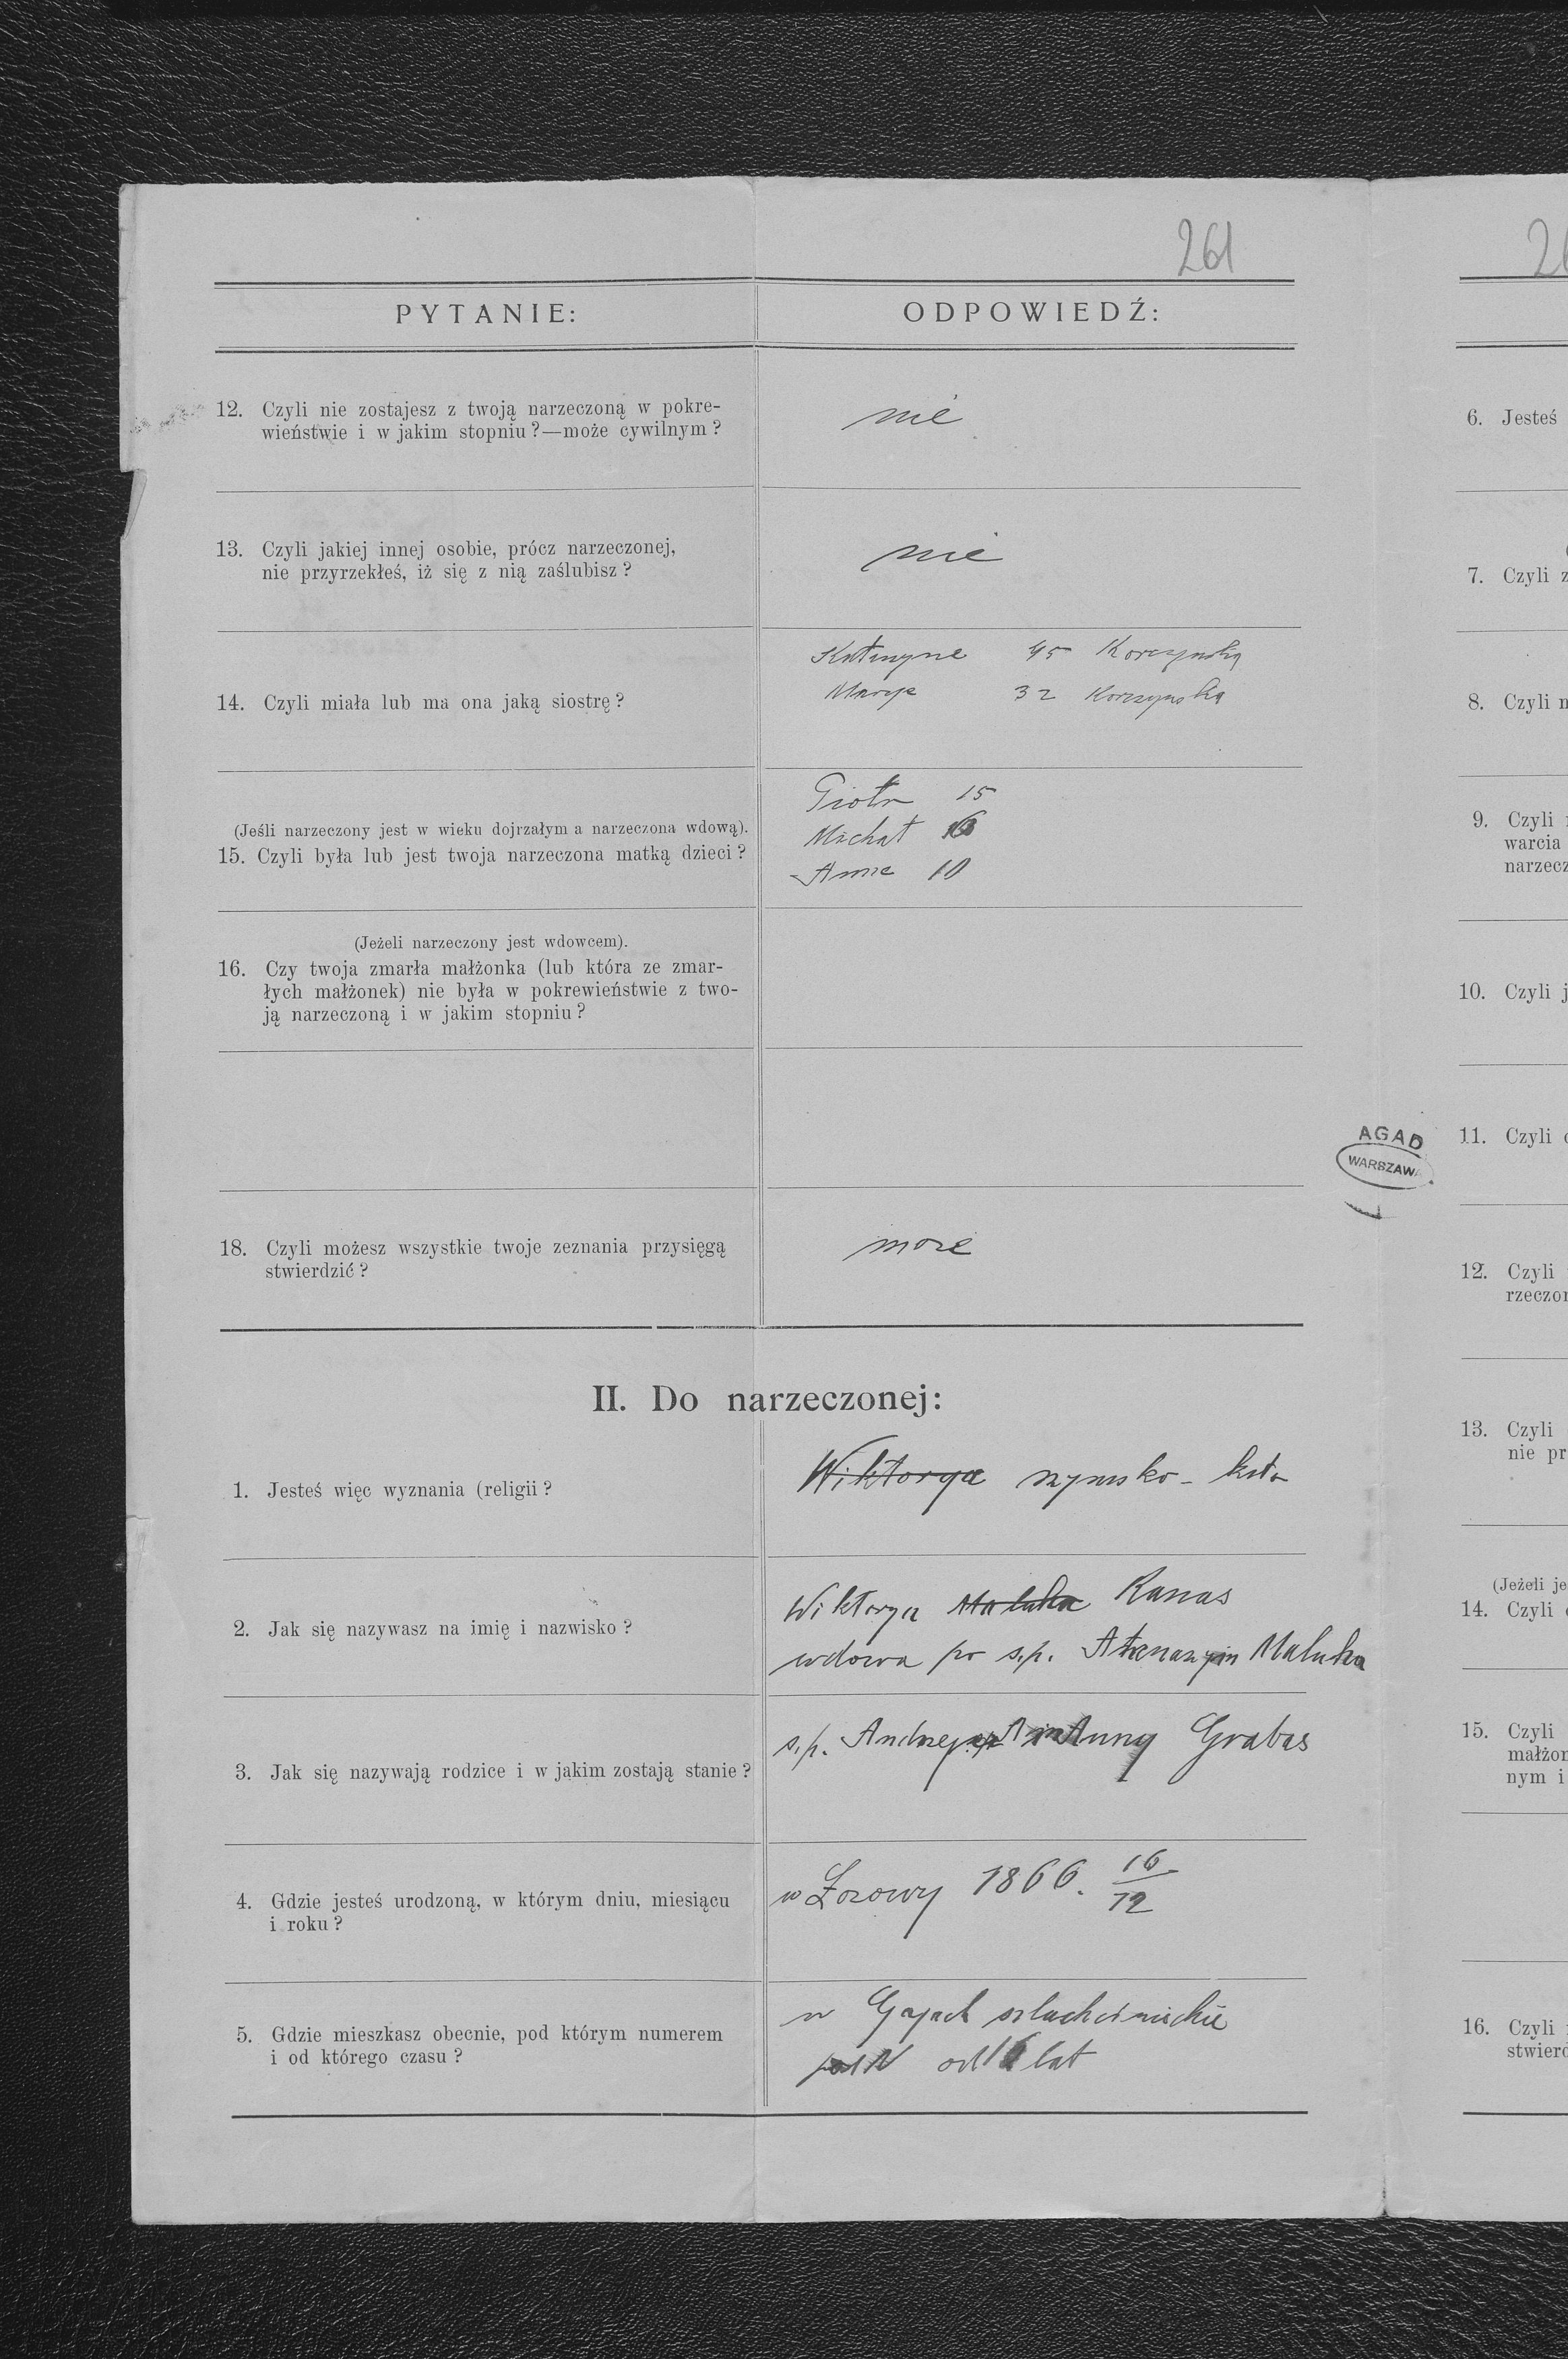 261
PYTANIE: ODPOWIEDŹ:
12. Czyli nie zostajesz z twoją narzeczoną w pokre-
wieństwie i w jakim stopniu?—może cywilnym?
nie
13. Czyli jakiej innej osobie, prócz narzeczonej,
nie przyrzekłeś, iż się z nią zaślubisz?
nie
14. Czyli miała lub ma ona jaką siostrę?
Katarzyna 45 Korczyńska
Marya 32 Korczyńska
(Jeśli narzeczony jest w wieku dojrzałym a narzeczona wdową).
15. Czyli była lub jest twoja narzeczona matką dzieci?
Piotr 15
Michał
Anna 10
(Jeżeli narzeczony jest wdowcem).
16. Czy twoja zmarła małżonka (lub która ze zmar-
łych małżonek) nie była w pokrewieństwie z two-
ją narzeczoną i w jakim stopniu?
18. Czyli możesz wszystkie twoje zeznania przysięgą
stwierdzić?
może
II. Do narzeczonej:
1. Jesteś więc wyznania (religii?
Wiktorya rzymsko-kat.
2. Jak się nazywasz na imię i nazwisko?
Wiktorya Maluha Kanas
wdowa po s.p. Atanazym Maluha
3. Jak się nazywają rodzice i w jakim zostają stanie?
s.p. Andrzej Anny Grabas
4. Gdzie jesteś urodzoną, w którym dniu, miesiącu
i roku?
w Łozowy 1866. 16/12
5. Gdzie mieszkasz obecnie, pod którym numerem
i od którego czasu?
w Gajach szlachcinieckie
pod N od lat
AGAD
WARSZAWA
6. Jesteś
7. Czyli z
8. Czyli
9. Czyli
warcia
narzecz
10. Czyli j
11. Czyli
12. Czyli
rzeczon
13. Czyli
nie pr
(Jeżeli je
14. Czyli
15. Czyli
małżon
nym i
16. Czyli
stwierd